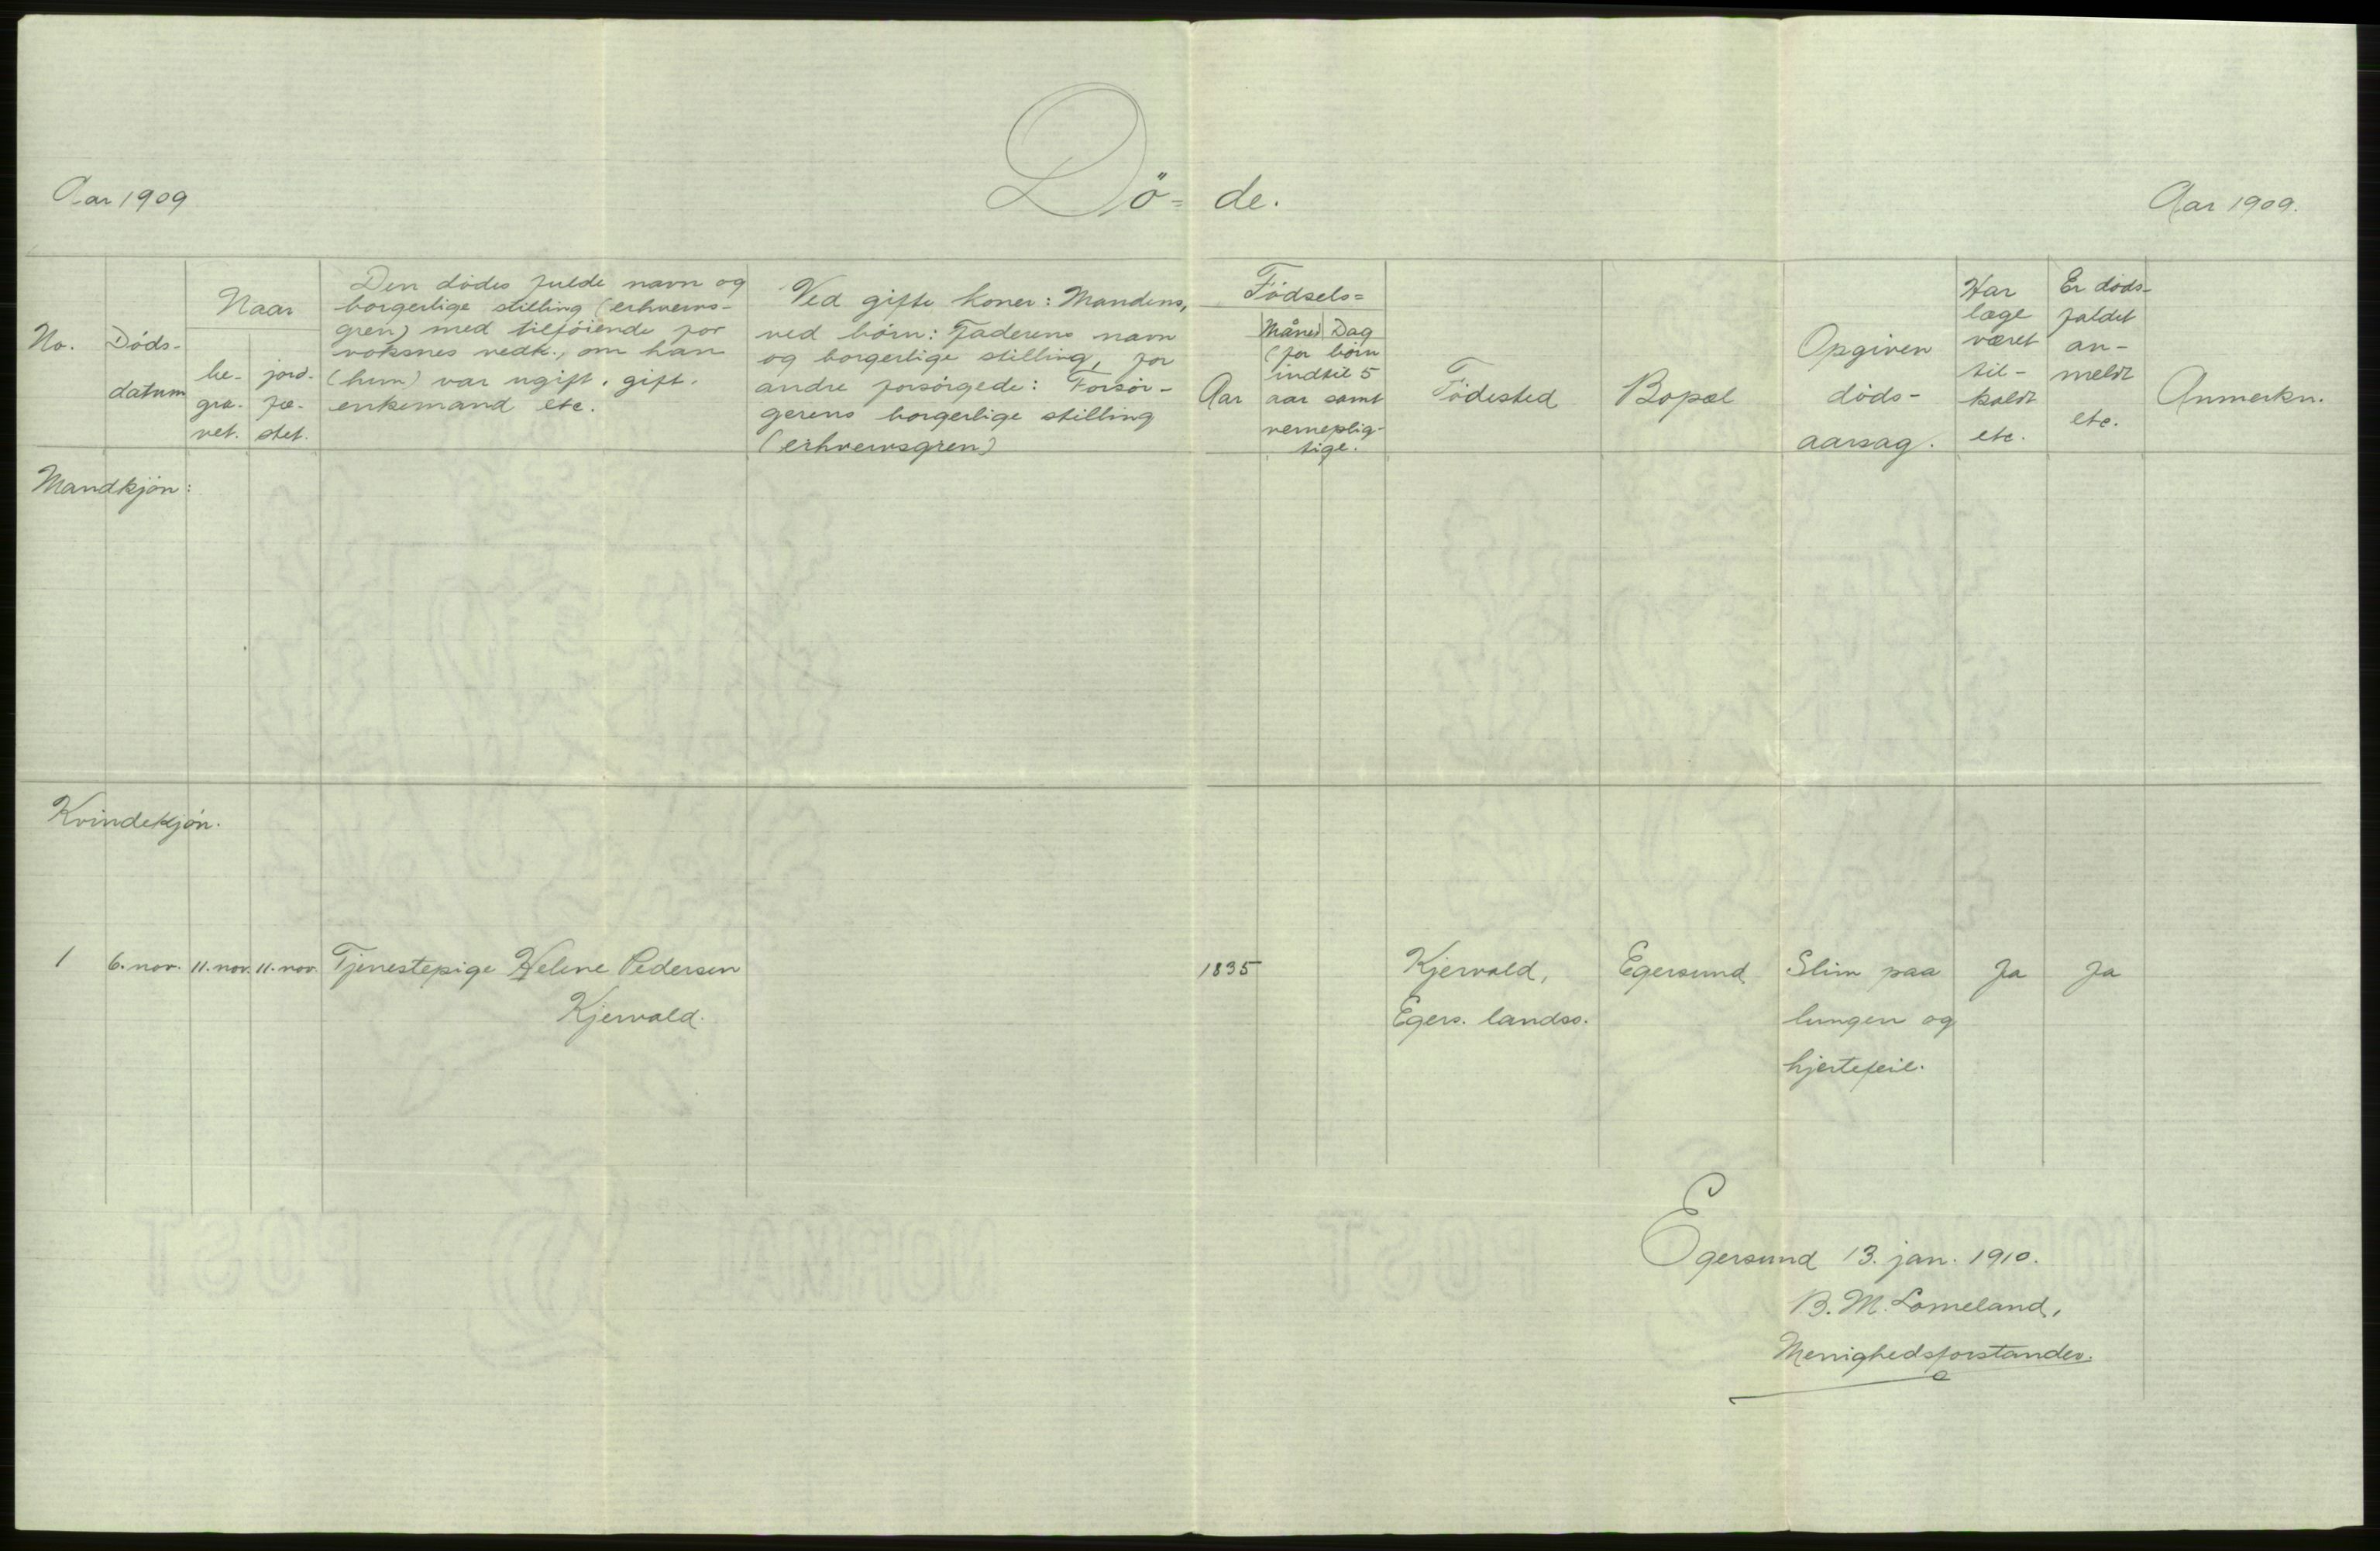 Aar 1909
Dö= de.
Aar 1909.
No.
Döds-
datum
Naar
be-
gra-
vet.
jord-
fæ-
stet.
Den dödes fulde navn og
borgerlige stilling (erhvervs-
gren) med tilföiende for
voksnes vedk., om han
(hun) var ugift, gift,
enkemand etc.
Ved gifte koner: Mandens,
ved börn: Faderens navn
og borgerlige stilling, for
andre forsörgede: Forsör-
gerens borgerlige stilling
(erhvervsgren)
Födsels=
Aar
Måned Dag
(for börn
indtil 5
aar samt
verneplig-
tige.
Födested
Bopæl
Opgiven
döds-
aarsag.
Har
læge
været
til-
kaldt
etc.
Er döds-
faldet
an-
meldt
etc.
Anmerkn.
Mandkjön:
Kvindekjön.
1 6. nov. 11. nov. 11. nov. Tjenestepige Helene Pedersen 1835 Kjervald, Egersund Slim paa Ja Ja
Kjervald. Egers. landss. lungen og
hjertefeil.
Egersund 13. jan. 1910.
B. M. Lomeland,
Menighedsforstander.
POST NORMAL POST NORMAL